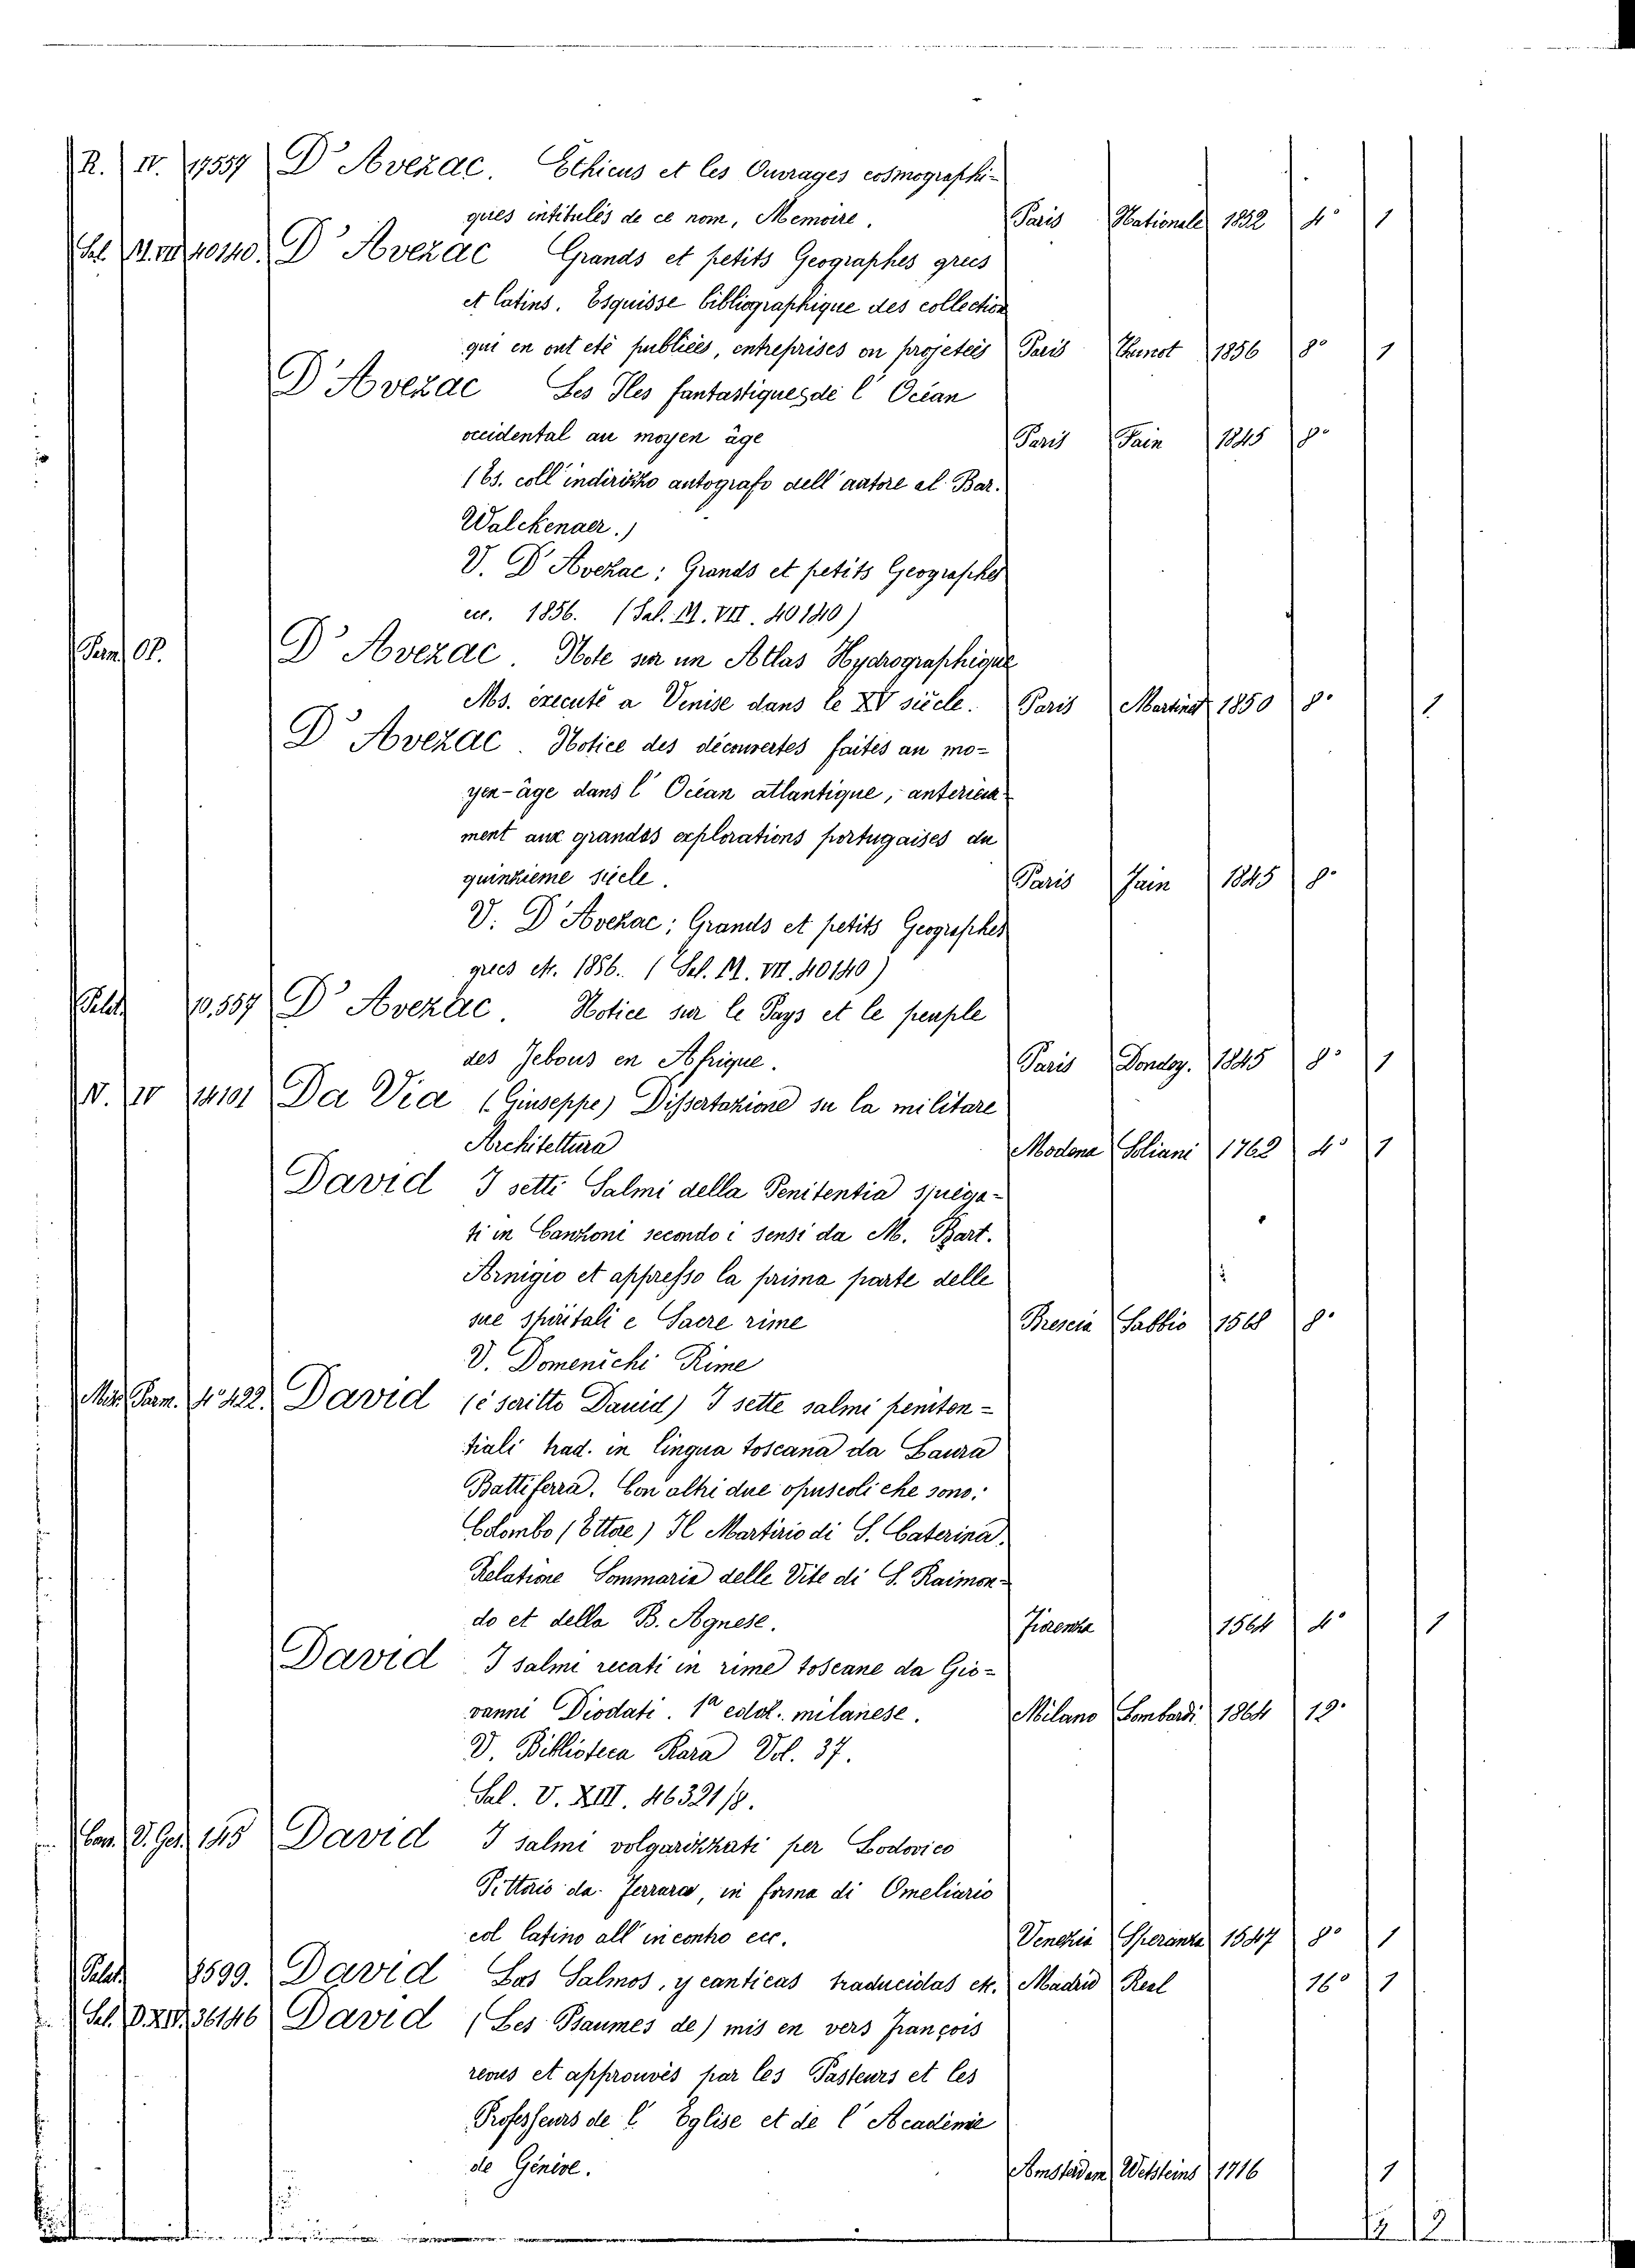 R. IV. 17557 D'Avezac. Ethicus et les Ouvrages cosmographi-
ques intitulés de ce nom, Memoire. Paris Nationale 1852 4° 1
Sal. M. VII. 40140. D'Avezac Grands et petits Geographes grecs
et latins. Esquisse bibliographique des collection
qui en ont eté publiées, entreprises on projeteés Paris Thunot 1856 8° 1
D'Avezac Les Iles fantastiques de l'Océan
occidental au moyen âge Paris Fain 1845 8°
(Es. coll'indirizzo autografo dell'autore al Bar.
Walckenaer.)
V. D'Avezac: Grands et petits Geographes
ecc. 1856. (Sal. M. VII. 40140)
Parm. OP. D'Avezac. Note sur un Atlas Hydrographique
Ms. executé a Venise dans le XV siècle. Paris Martinet 1850 8° 1
D'Avezac. Notice des découvertes faites an mo-
yen-âge dans l'Océan atlantique, anterieur
ment aux grandes explorations portugaises du
quinzieme siècle. Paris Fain 1845 8°
V. D'Avezac; Grands et petits Geographes
grecs etc. 1856. (Sal. M. VII. 40140)
Palat. 10,557 D'Avezac. Notice sur le Pays et le peuple
des Jebous en Afrique. Paris Dondey. 1845 8° 1
N. IV 14101 Da Via (Giuseppe) Dissertazione su la militare
Architettura Modena Soliani 1762 4° 1
David I setti Salmi della Penitentia spiega-
ti in Canzoni secondo i sensi da M. Bart.
Arnigio et appresso la prima parte delle
sue spiritali e Sacre rime Brescia Sabbio 1568 8°
V. Domenichi Rime
Mis. Parm. 4° 422. David (è scritto Dauid) I sette salmi peniten-
tiali trad. in lingua toscana da Laura
Battiferra. Con altri due opuscoli che sono:
Colombo (Ettore) Il Martirio di S. Caterina.
Relatione Sommaria delle Vite di S. Raimon-
do et della B. Agnese. Fiorenza 1564 4° 1
David I salmi recati in rime toscane da Gio-
vanni Diodati. 1a ediz. milanese. Milano Lombardi 1864 12°
V. Biblioteca Rara Vol. 37.
Sal. V. XIII. 46321/8.
V. Ges. 145 David I salmi volgarizzati per Lodovico
Pittorio da Ferrara, in forma di Omeliario
col latino all'incontro ecc. Venezia Speranza 1547 8° 1
Palat. 8599. David Los Salmos, y canticas traducidas etc. Madrid Real 16° 1
Sal. D. XIV. 36146 David (Les Psaumes de) mis en vers François
revus et approuvés par les Pasteurs et les
Professeurs de l'Eglise et de l'Académie
de Génève. Amsterdam Wetsteins 1716 1
12 2